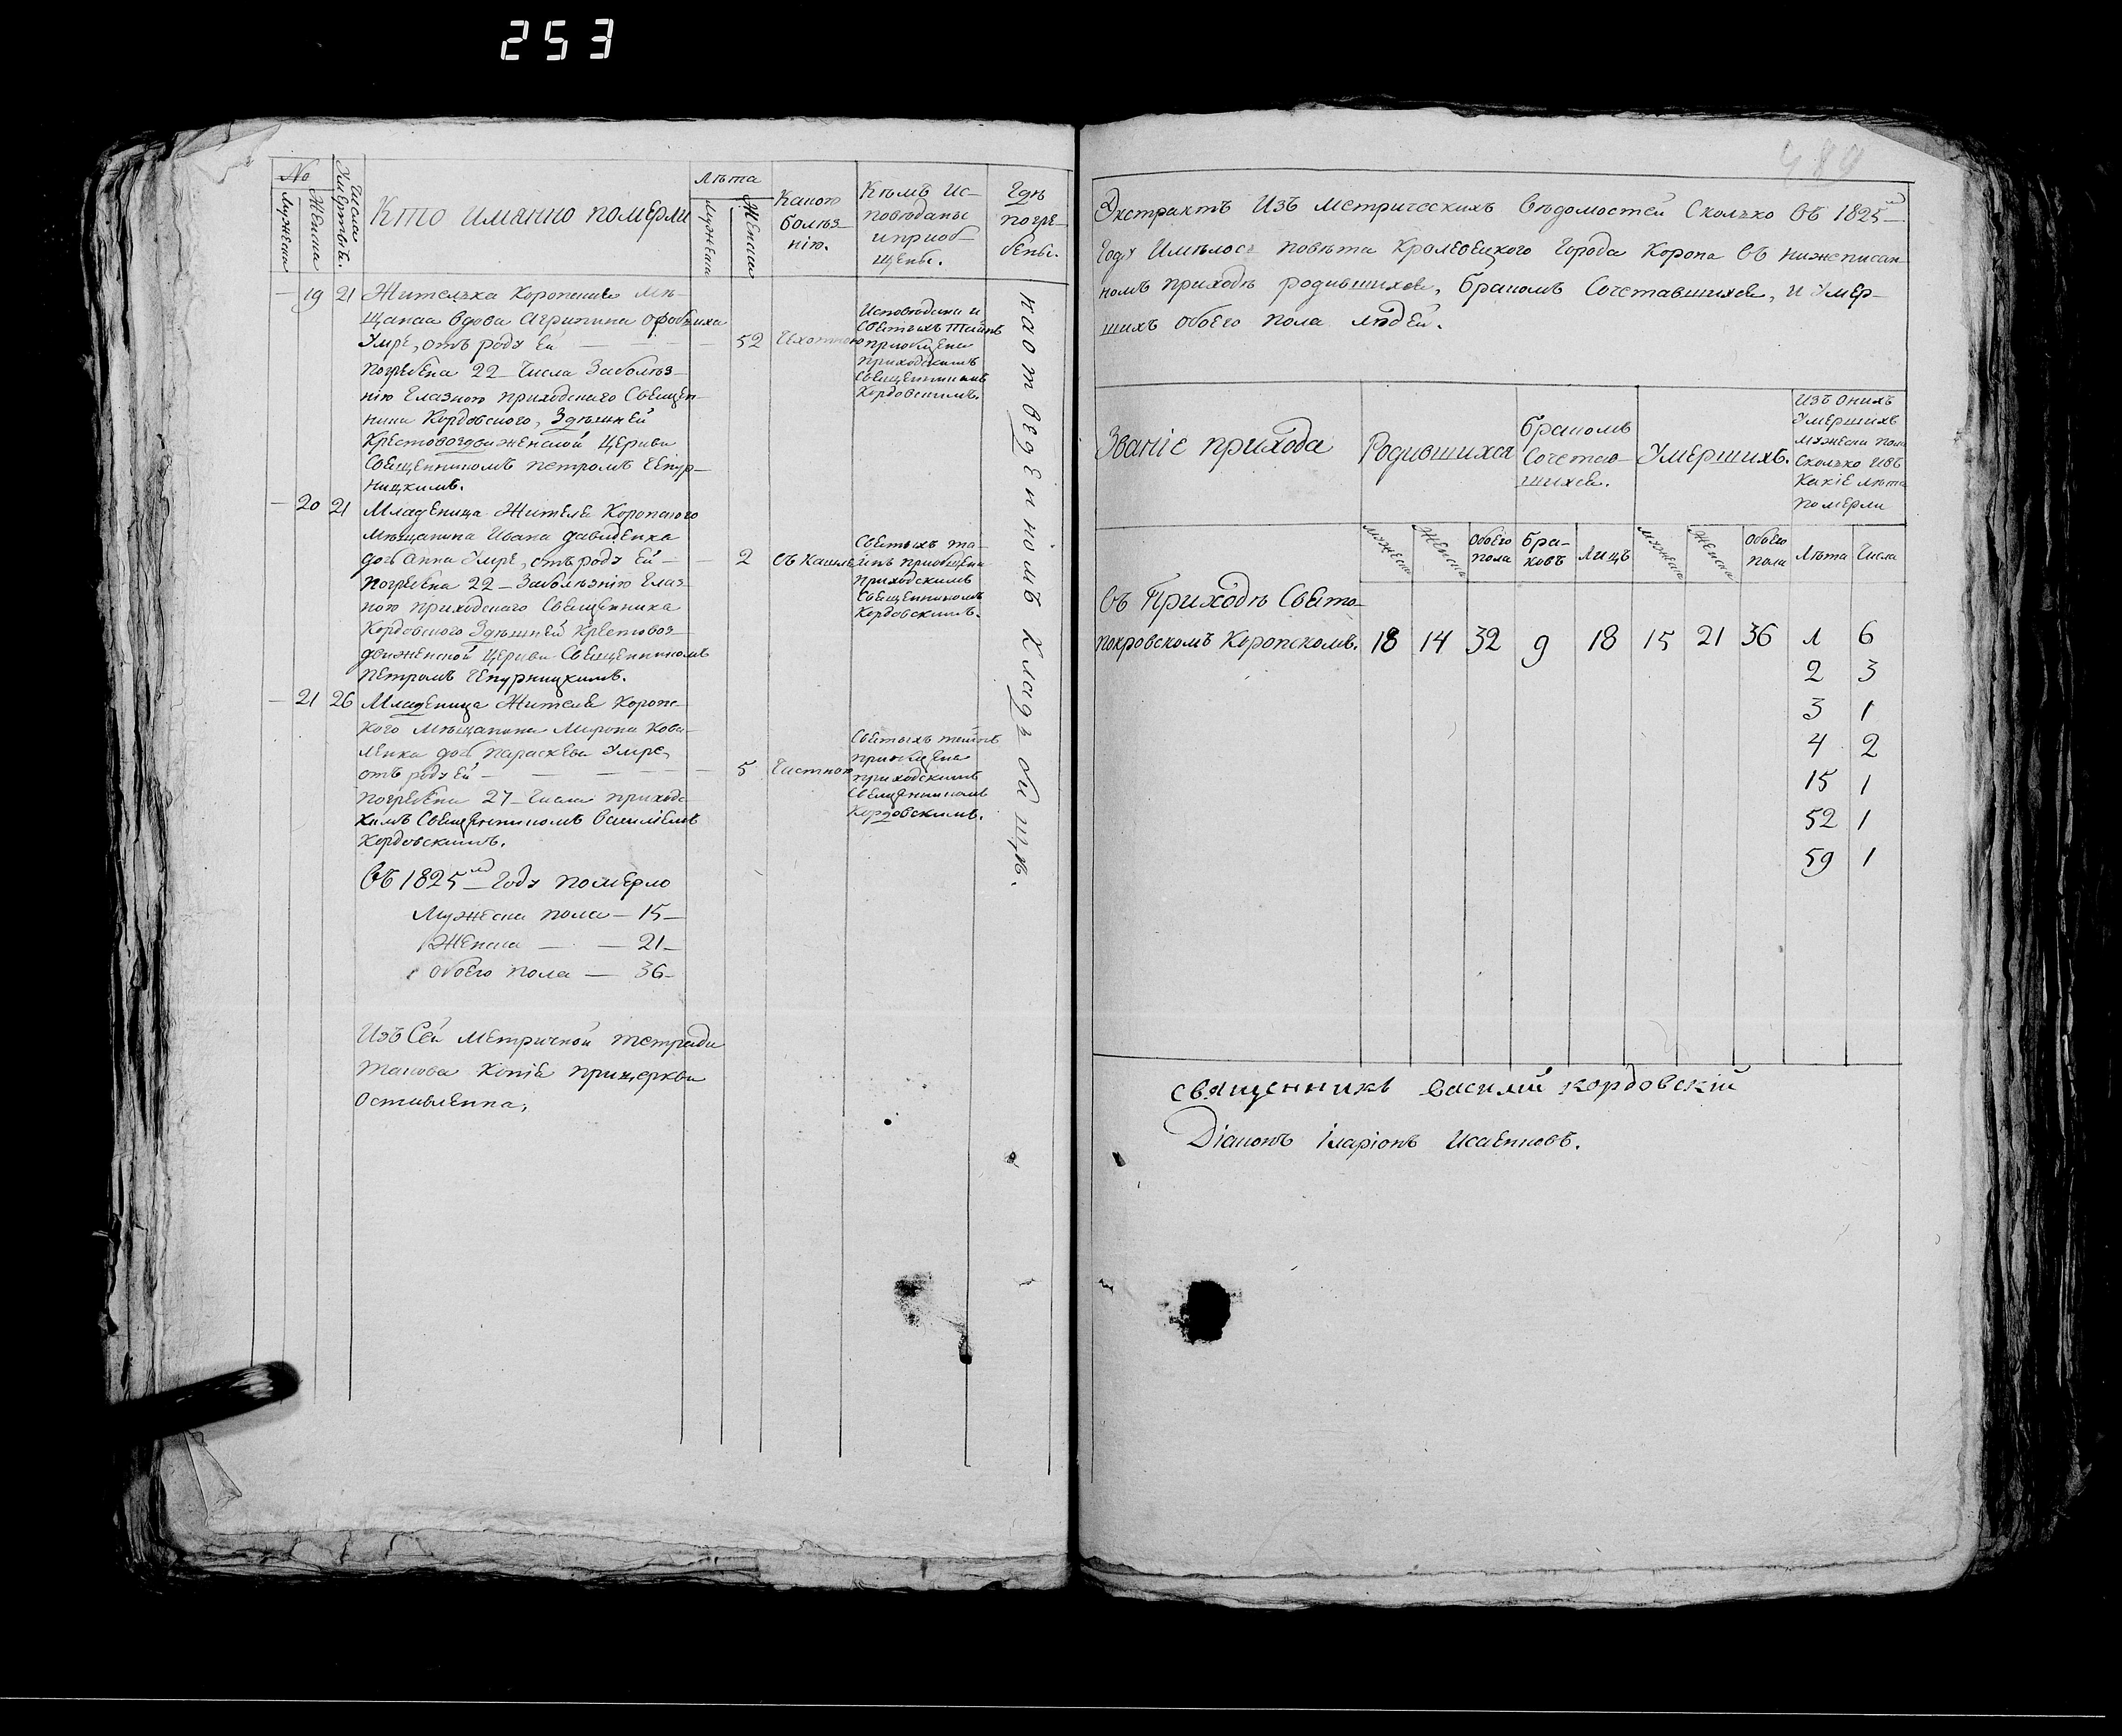 253
No
Мужеска
Женска
Числа Умертвъ.
Кто имянно померли
лѣта
Мужеска
Женска
Какою
болѣз-
нію.
Кѣмъ ис-
повѣданы
и приоб-
щены.
Гдѣ
погре-
бены.
— 19 21 Жителька Коропская мѣ-
щанка вдова Агрипина
Умре, отъ роду ей — — — 52
погребена 22 — Числа Заболѣз-
нію Глазною приходскаго Священ-
ника Кордовского, Здѣшней
Крестовоздвиженской Церкви
Священникомъ Петромъ
ницкимъ.
Исповѣдана и
Святыхъ таинъ
приобщена
приходскимъ
Священникомъ
Кордовскимъ.
— 20 21 Младеница Жителя Коропского
Мѣщанина Ивана Давиденка
дочь Анна Умре, отъ роду ей — — 2 Отъ Кашля
погребена 22 — Заболѣзнію Глаз-
ною приходскаго Священника
Кордовского Здѣшней Крестовоз-
движенской Церкви Священникомъ
Петромъ
Святыхъ та-
инъ приобщена
приходскимъ
Священникомъ
Кордовскимъ.
— 21 26 Младеница Жителя Коропс-
кого Мѣщанина Мирона Кова-
ленка дочь Параскева Умре,
отъ роду ей — — — — — 5
погребена 27 — Числа приходс-
кимъ Священникомъ Василіемъ
Кордовскимъ.
Святыхъ таинъ
приобщена
приходскимъ
Священникомъ
Кордовскимъ.
на отведенномъ кладъбищѣ.
Въ 1825м Году померло
Мужеска пола — 15 —
Женска — — 21 —
Обоего пола — 36 —
Изъ Сей Метричной тетради
такова Копія при церкви
Оставленна,
489
Экстрактъ Изъ Метрическихъ Вѣдомостей Сколько Въ 1825м
Году Имѣлось повѣта Кролевецкого Города Коропа въ нижеписан-
номъ приходѣ родившихся, бракомъ Сочетавшихся, и Умер-
шихъ обоего пола людей.
Званіе прихода
Родившихся
Бракомъ
Сочетав-
шихся.
Умершихъ.
Изъ Онихъ
Умершихъ
мужеска пола
Сколько Изъ
Какіе лѣта
померли
Мужеска
Женска
Обоего
пола
Бра-
ковъ
Лицъ
Мужеска
Женска
Обоего
пола
Лѣта
Числа
Въ Приходѣ Свято-
покровскомъ Коропскомъ. 18 14 32 9 18 15 21 36 1 6
2 3
3 1
4 2
15 1
52 1
59 1
священникъ Василий Кордовскій
Діаконъ Іларіонъ Исаенковъ.